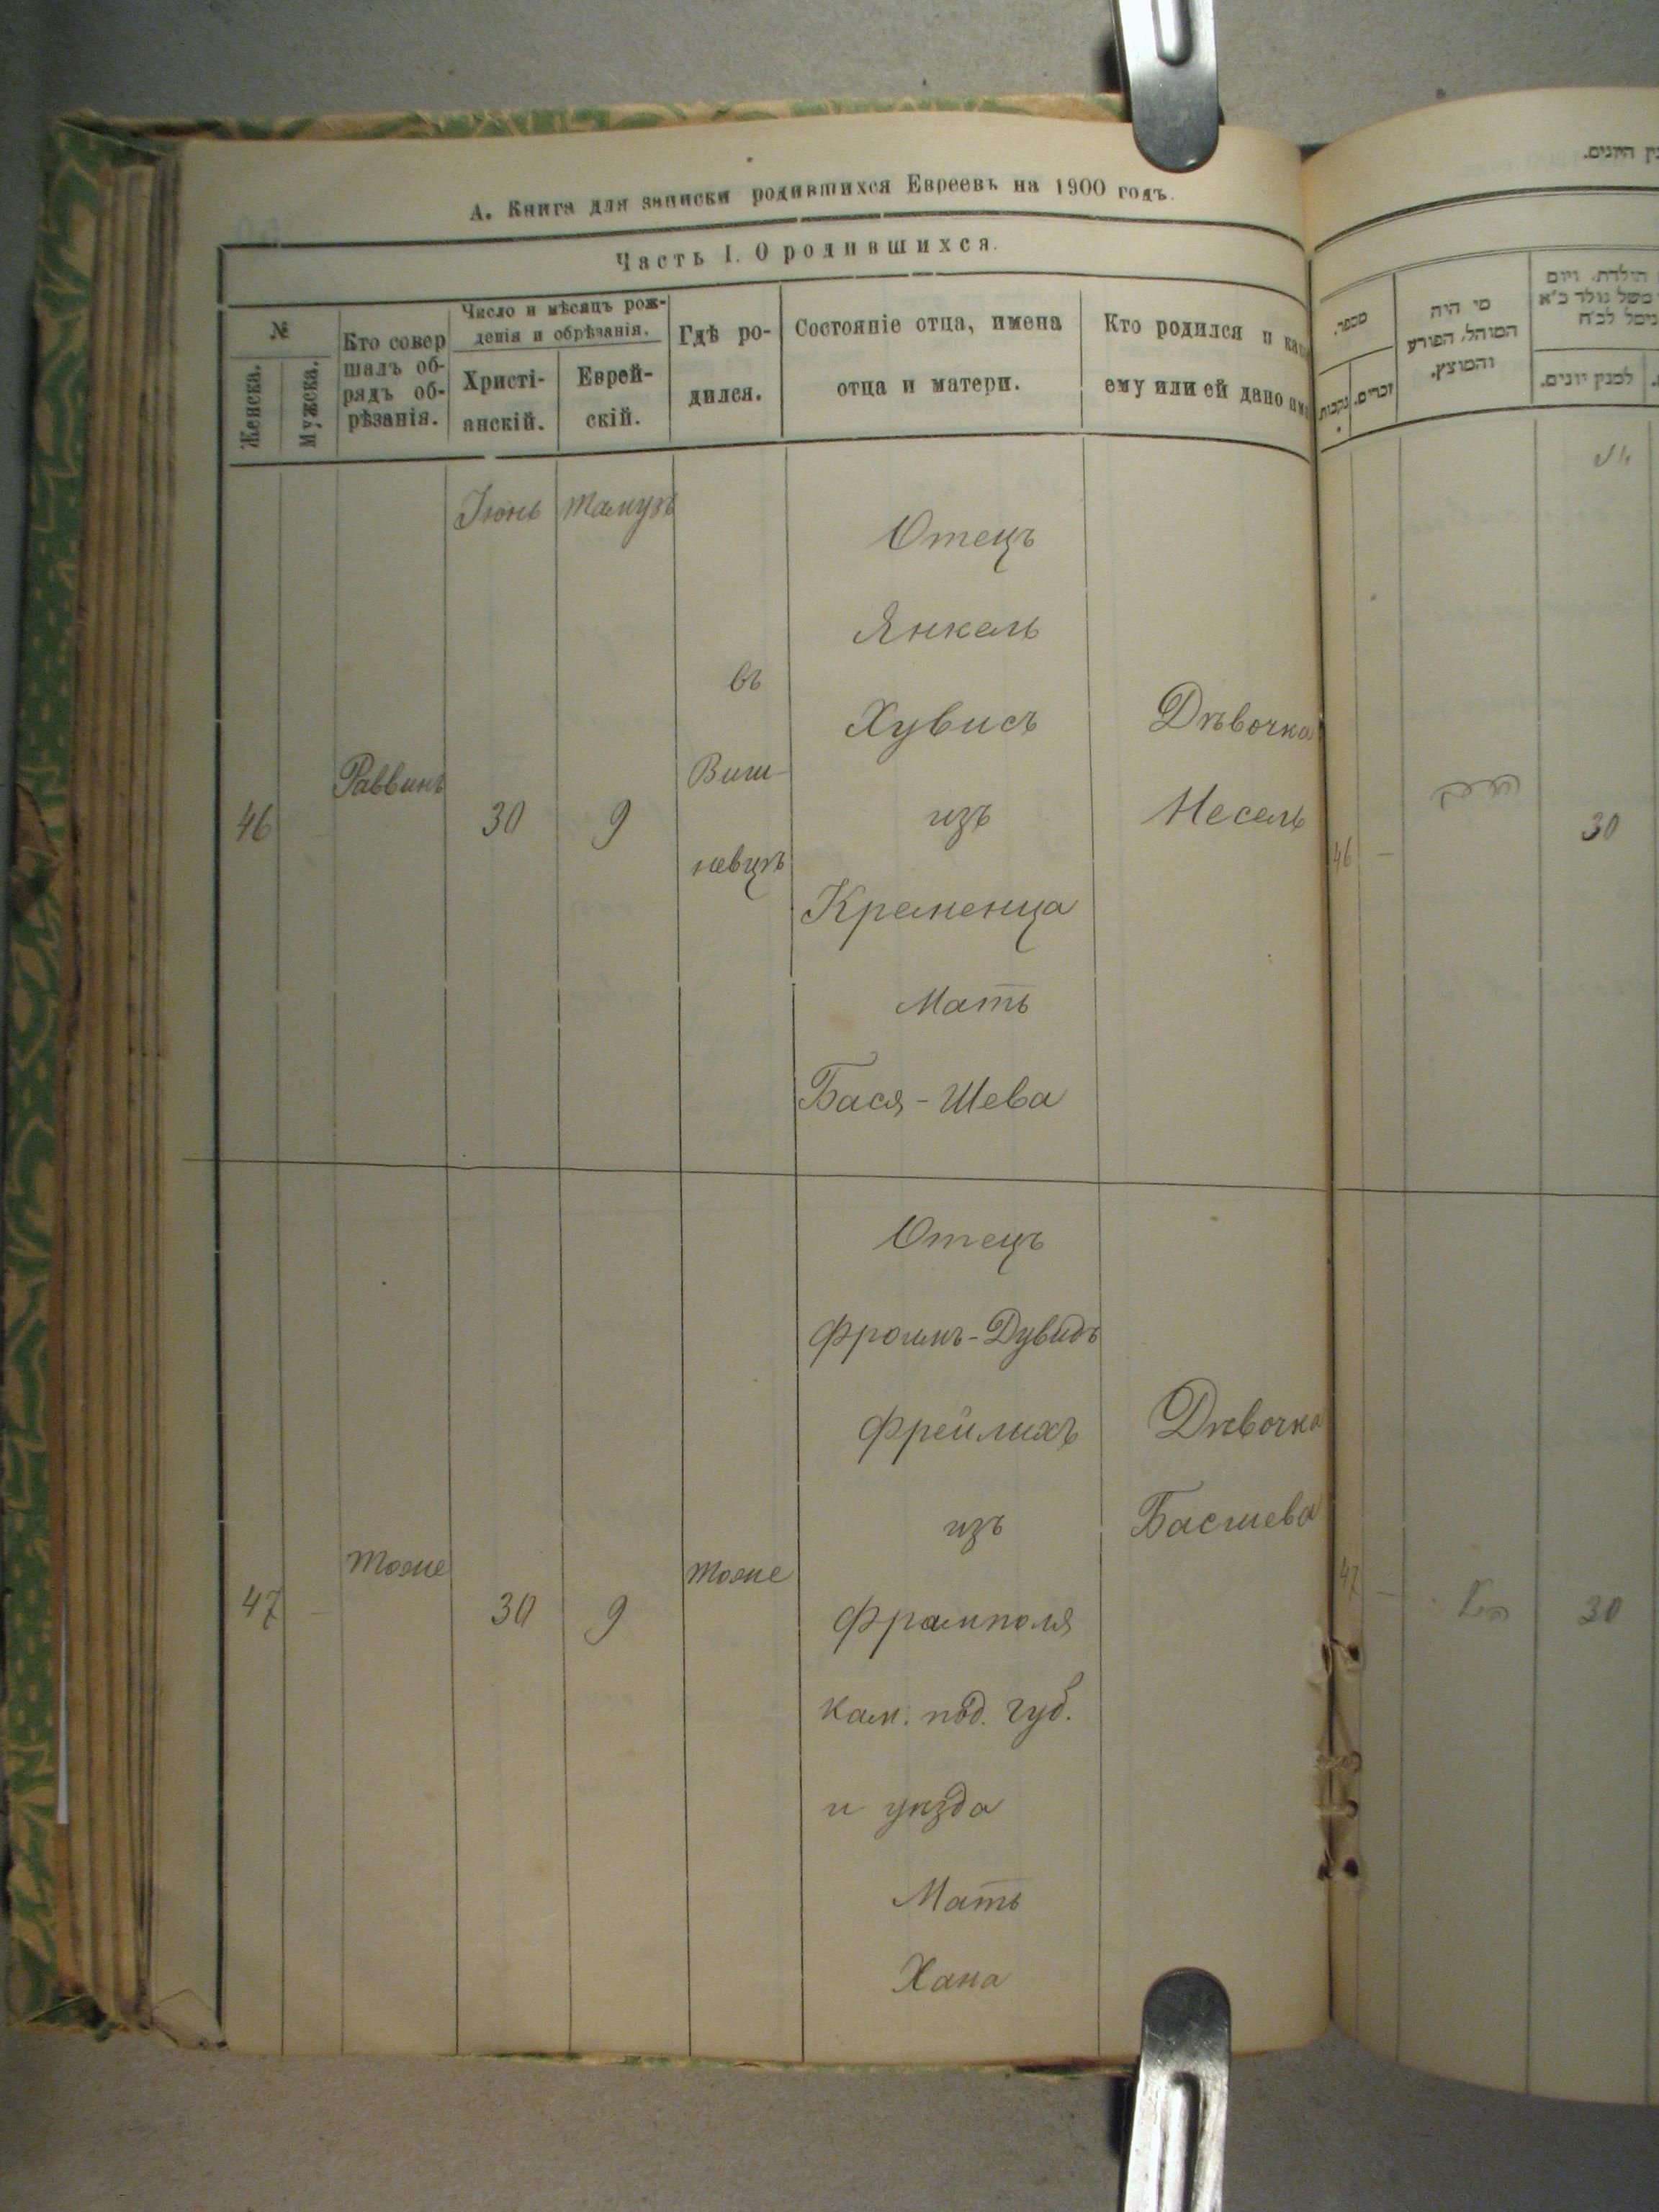 А. Книга для записки родившихся Евреевъ на 1900 годъ.
Часть I. О родившихся.
№
Женска.
Мужска.
Кто совер
шалъ об-
рядъ об-
рѣзанія.
Число и мѣсяцъ рож-
денія и обрѣзанія.
Христі-
анскій.
Еврей-
скій.
Гдѣ ро-
дился.
Состояніе отца, имена
отца и матери.
Кто родился и как
ему или ей дано им
Іюнь
Тамузъ
46
Раввинъ
30
9
въ
Виш-
невцѣ
Отецъ
Янкель
Хувисъ
изъ
Кременца
Мать
Бася-Шева
Дѣвочка
Несель
47 –
Тоже
30
9
Тоже
Отецъ
Фроимъ-Дувидъ
Фрейлихъ
изъ
Фрамполя
Кам. под. губ.
и уѣзда
Мать
Хана
Дѣвочка
Басшева
ן היונים.
מספר.
נקבות
זכרים.
מי היה
המוהל, הפורע
והמוצץ.
הולדת, ויום
למנין יונים.
46 –
30
47 –
30